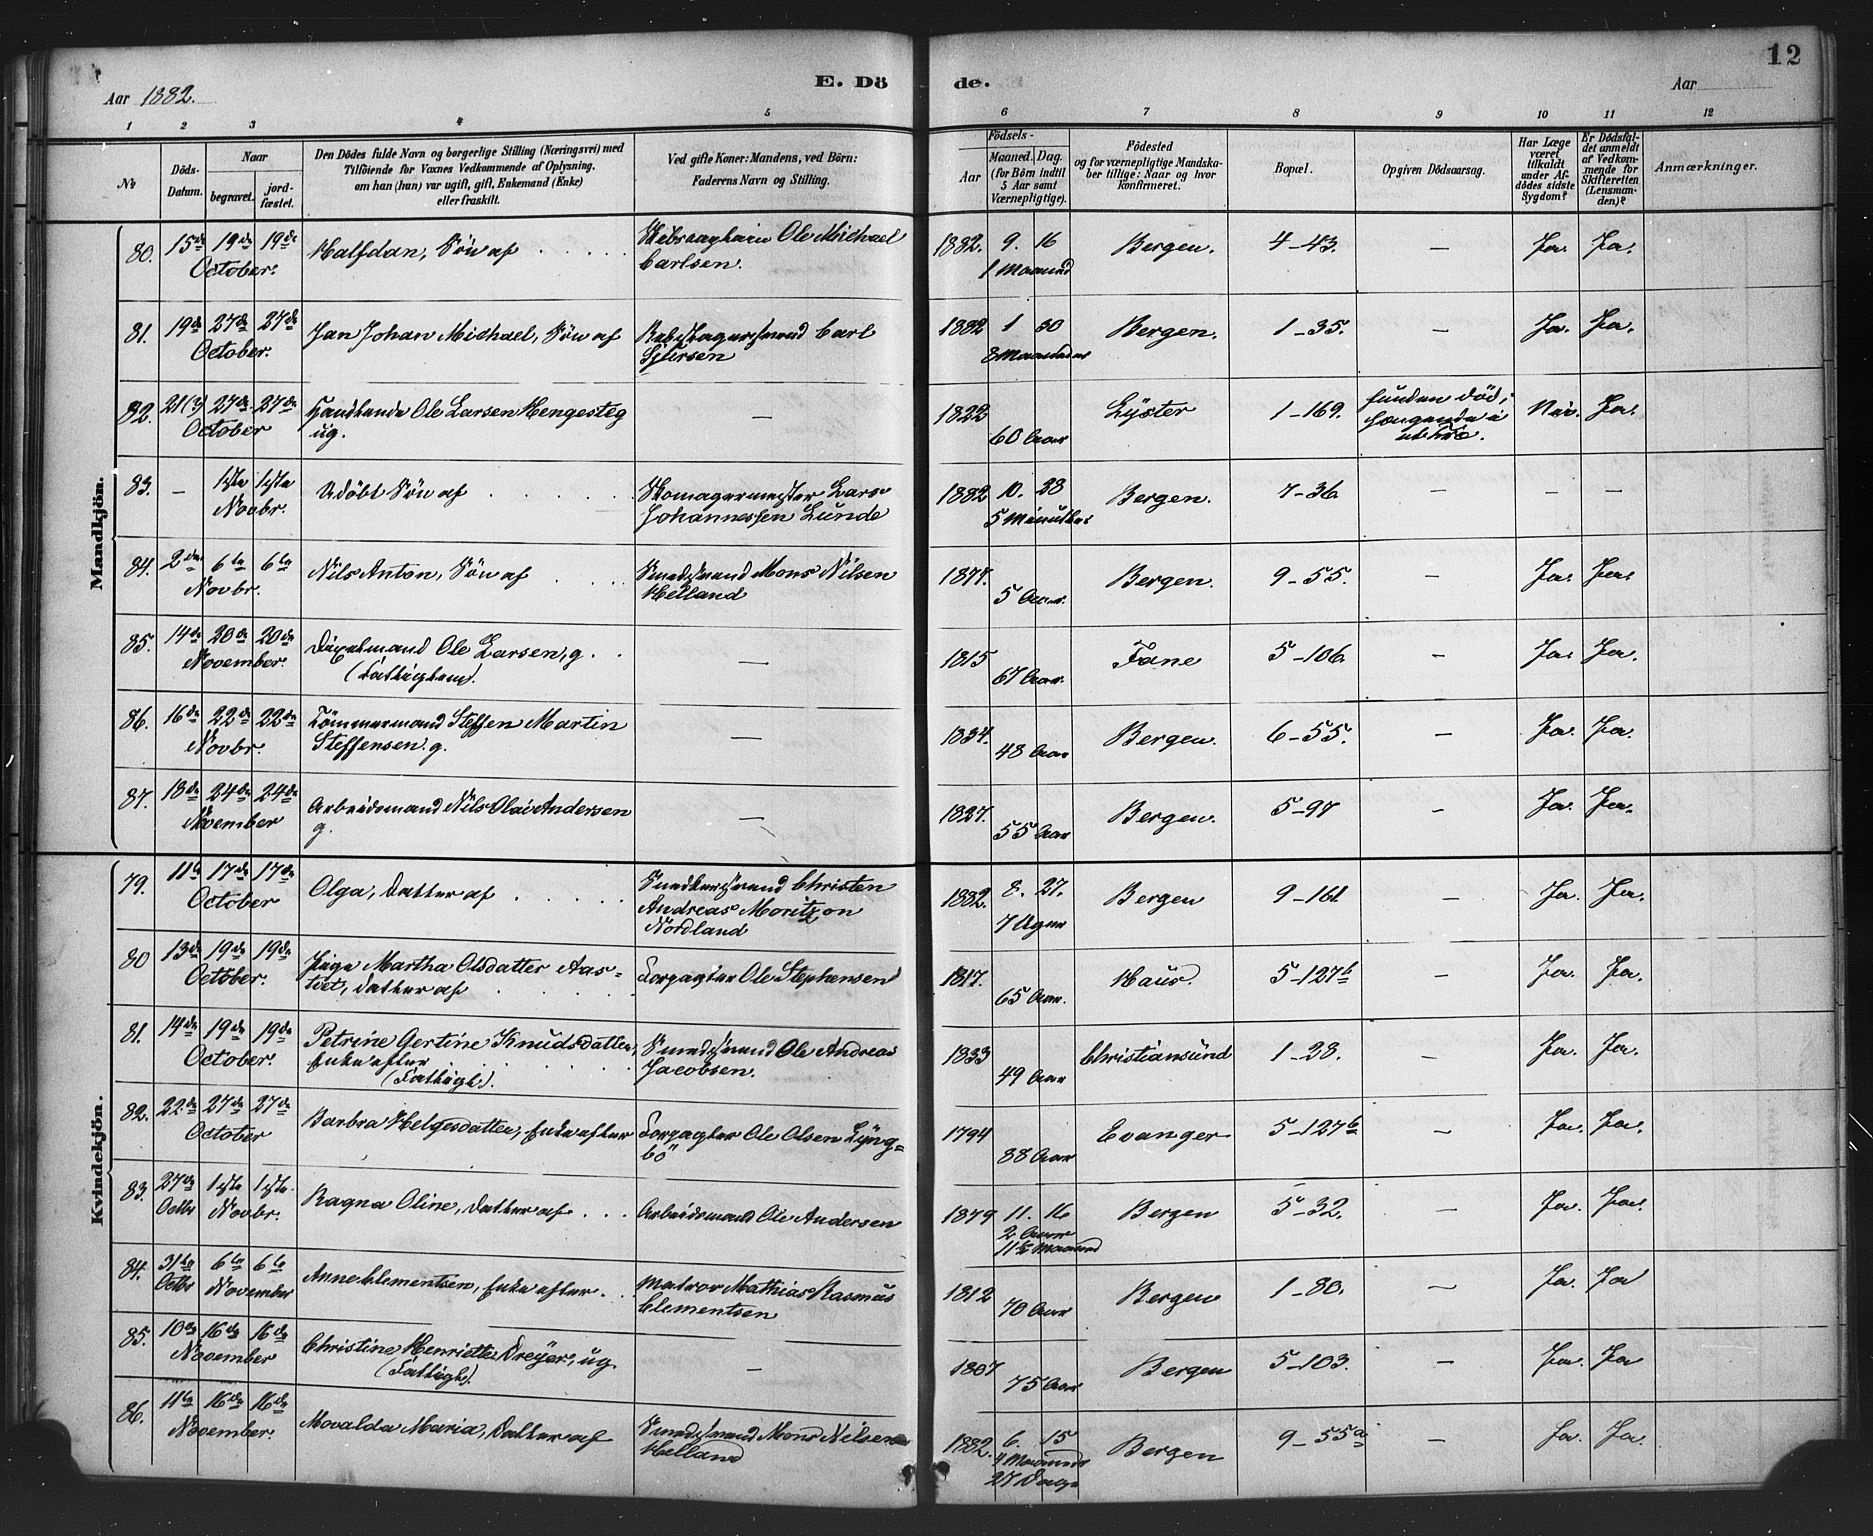 12
E. Dö de.
Aar 1882. Aar
1 2 3 4 5 6 7 8 9 10 11 12
№ Döds-Datum. Naar begravet. jord-fæstet. Den Dödes fulde Navn og borgerlige Stilling (Næringsvei) med Tilföiende for Voxnes Vedkommende af Oplysning, om han (hun) var ugift, gift, Enkemand (Enke) eller fraskilt. Ved gifte Koner: Mandens, ved Börn: Faderens Navn og Stilling. Födsels- Aar Maaned. Dag. (for Börn indtil 5 Aar samt Værnepligtige). Födested og for værnepligtige Mandskaber tillige: Naar og hvor konfirmeret. Bopæl. Opgiven Dödsaarsag. Har Læge været tilkaldt under Afdödes sidste Sygdom? Er Dödsfaldet anmeldt af Vedkommende for Skifteretten (Lensmanden)? Anmærkninger.
Mandkjön.
80. 15de 19de 19de October. Halfdan, Sön af Ole Michael Carlsen. 1882. 9. 16 1 Maaned Bergen. 4-43. — Ja. Ja.
81. 19de 27de 27de October. Jan Johan Michael, Sön af Carl 1882 1 30 8 Maaneder Bergen. 1-35. — Ja. Ja.
82. 21(?) 27de 27de October Ole Larsen Hengesteg ug. — 1822 60 Aar Lyster 1-169. funden död, hængende i Nei. Ja.
83. — 1ste 1ste Novbr. Udöbt Sön af Skomagermester Lars Johannessen Lunde 1882 10. 28 5 Minutter Bergen. 7-36. — — —
84. 2den 6te 6te Novbr. Nils Anton, Sön af Smedsvend Mons Nilsen Helland 1877. 5 Aar. Bergen. 9-55. — Ja. Ja.
85. 14de 20de 20de November. Ole Larsen, g. (Fattiglem). — 1815 67 Aar. Fane 5-106. — Ja. Ja.
86. 16de 22de 22de Novbr. Tömmermand Steffen Martin Steffensen. g. — 1834. 48 Aar Bergen. 6-55. — Ja. Ja.
87. 18de 24de 24de November Arbeidsmand Nils Olai Andersen g. — 1827. 55 Aar Bergen. 5-97 — Ja. Ja.
Kvindekjön.
79. 11te 17de 17de October Olga, Datter af Snedkersvend Christen Andreas Moritzon Nordland 1882. 8. 27. 7 Uger Bergen 9-161. — Ja. Ja.
80 13de 19de 19de October. Pige Martha Olsdatter Aastvet, Datter af Forpagter Ole Stephensen 1817. 65 Aar. Haus. 5-127b — Ja. Ja.
81. 14de 19de 19de October. Petrine Gertine Knudsdatter, Enke efter (Fattigl). Smedsvend Ole Andreas Jacobsen. 1833 49 Aar Christiansund 1-28. — Ja. Ja.
82. 22de 27de 27de October Barbra Helgesdatter, Enke efter Forpagter Ole Olsen Lyngbö 1794 88 Aar Evanger 5-127b — Ja. Ja.
83. 27de Octbr 1ste 1ste. Novbr. Ragna Oline, Datter af Arbeidsmand Ole Andersen 1879 11. 16 2 Aar 11½ Maaned Bergen 5-32. — Ja. Ja.
84. 31te Octbr 6te 6te November Anne Clementsen, Enke efter Matros Mathias Rasmus Clementsen 1812 70 Aar Bergen 1-80. — Ja. Ja
85. 10de 16de 16de November Christine Henriette Dreyer, ug. (Fattigl). — 1807 75 Aar Bergen 5-103. — Ja. Ja
86. 11te 16de 16de November. Movalda Maria, Datter af Smedsvend Mons Nilsen Helland 1882. 6. 15 4 Maaneder 27 Dage Bergen 9-55a — Ja. Ja.